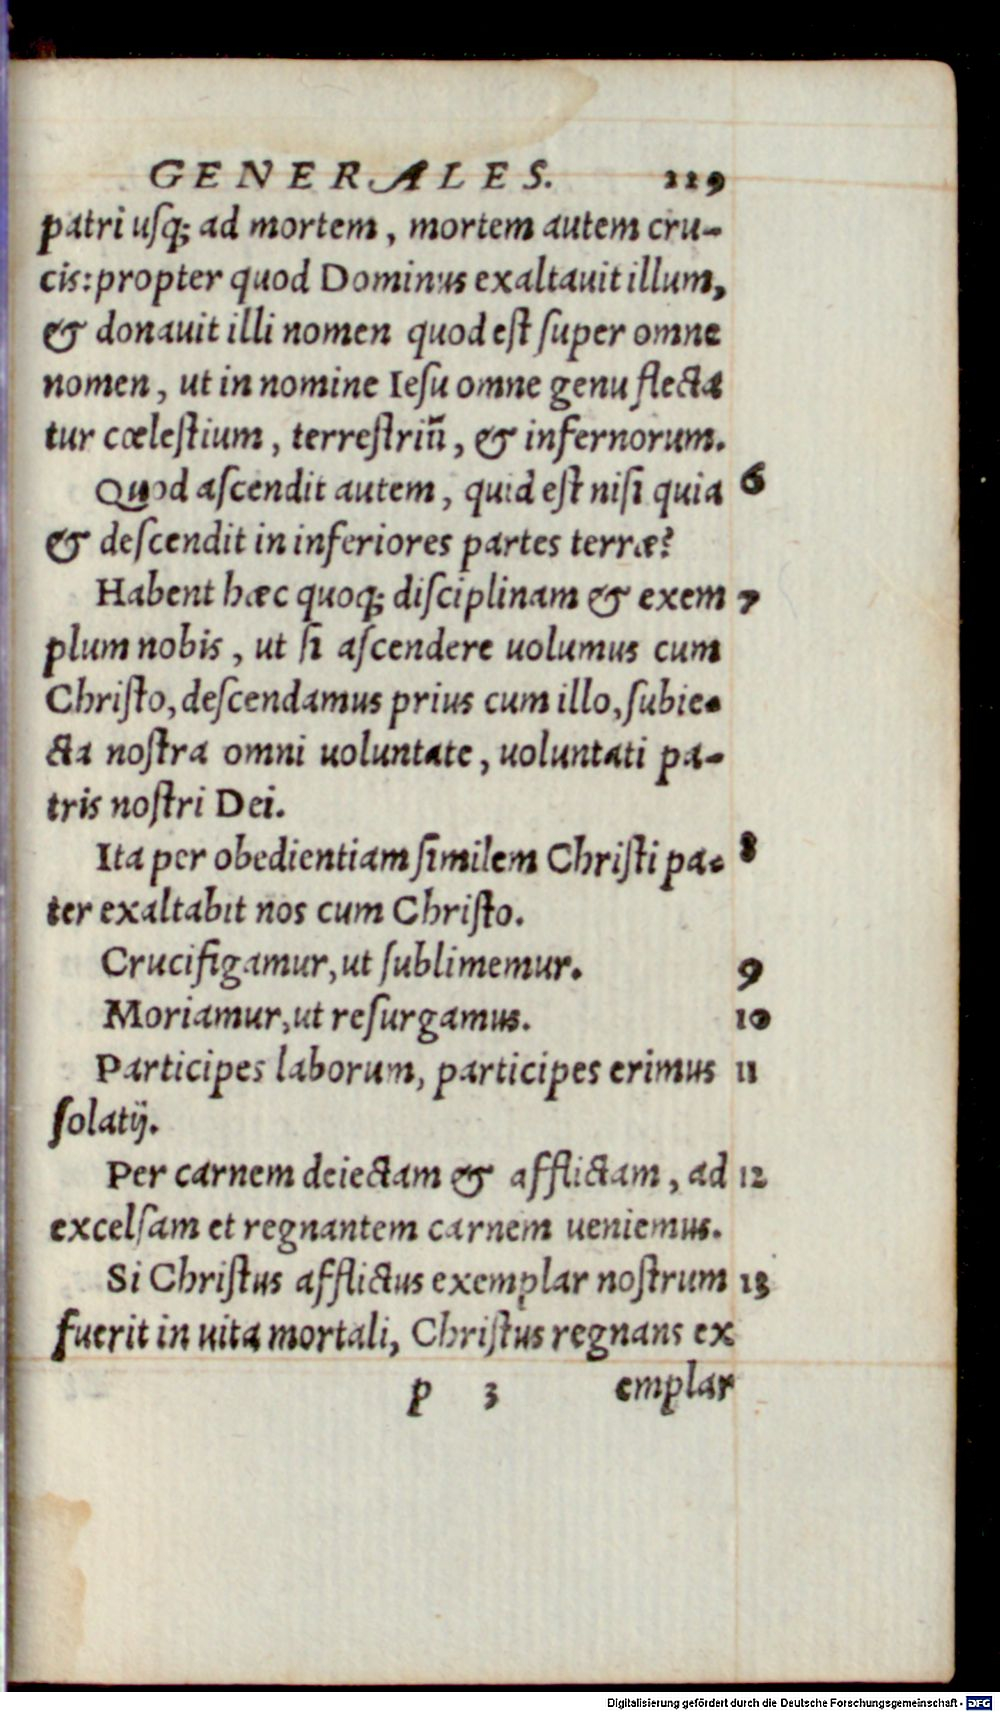 GENERALES. 119
patri usq; ad mortem, mortem autem cru-
cis: propter quod Dominus exaltauit illum,
& donauit illi nomen quod est super omne
nomen, ut in nomine Iesu omne genu flecta
tur cœlestium, terrestriū, & infernorum.
Quod ascendit autem, quid est nisi quia 6
& descendit in inferiores partes terræ?
Habent hæc quoq; disciplinam & exem 7
plum nobis, ut si ascendere uolumus cum
Christo, descendamus prius cum illo, subie-
cta nostra omni uoluntate, uoluntati pa-
tris nostri Dei.
Ita per obedientiam similem Christi pa- 8
ter exaltabit nos cum Christo.
Crucifigamur, ut sublimemur. 9
Moriamur, ut resurgamus. 10
Participes laborum, participes erimus 11
solatij.
Per carnem deiectam & afflictam, ad 12
excelsam et regnantem carnem ueniemus.
Si Christus afflictus exemplar nostrum 13
fuerit in uita mortali, Christus regnans ex
p 3 emplar
Digitalisierung gefördert durch die Deutsche Forschungsgemeinschaft - DFG